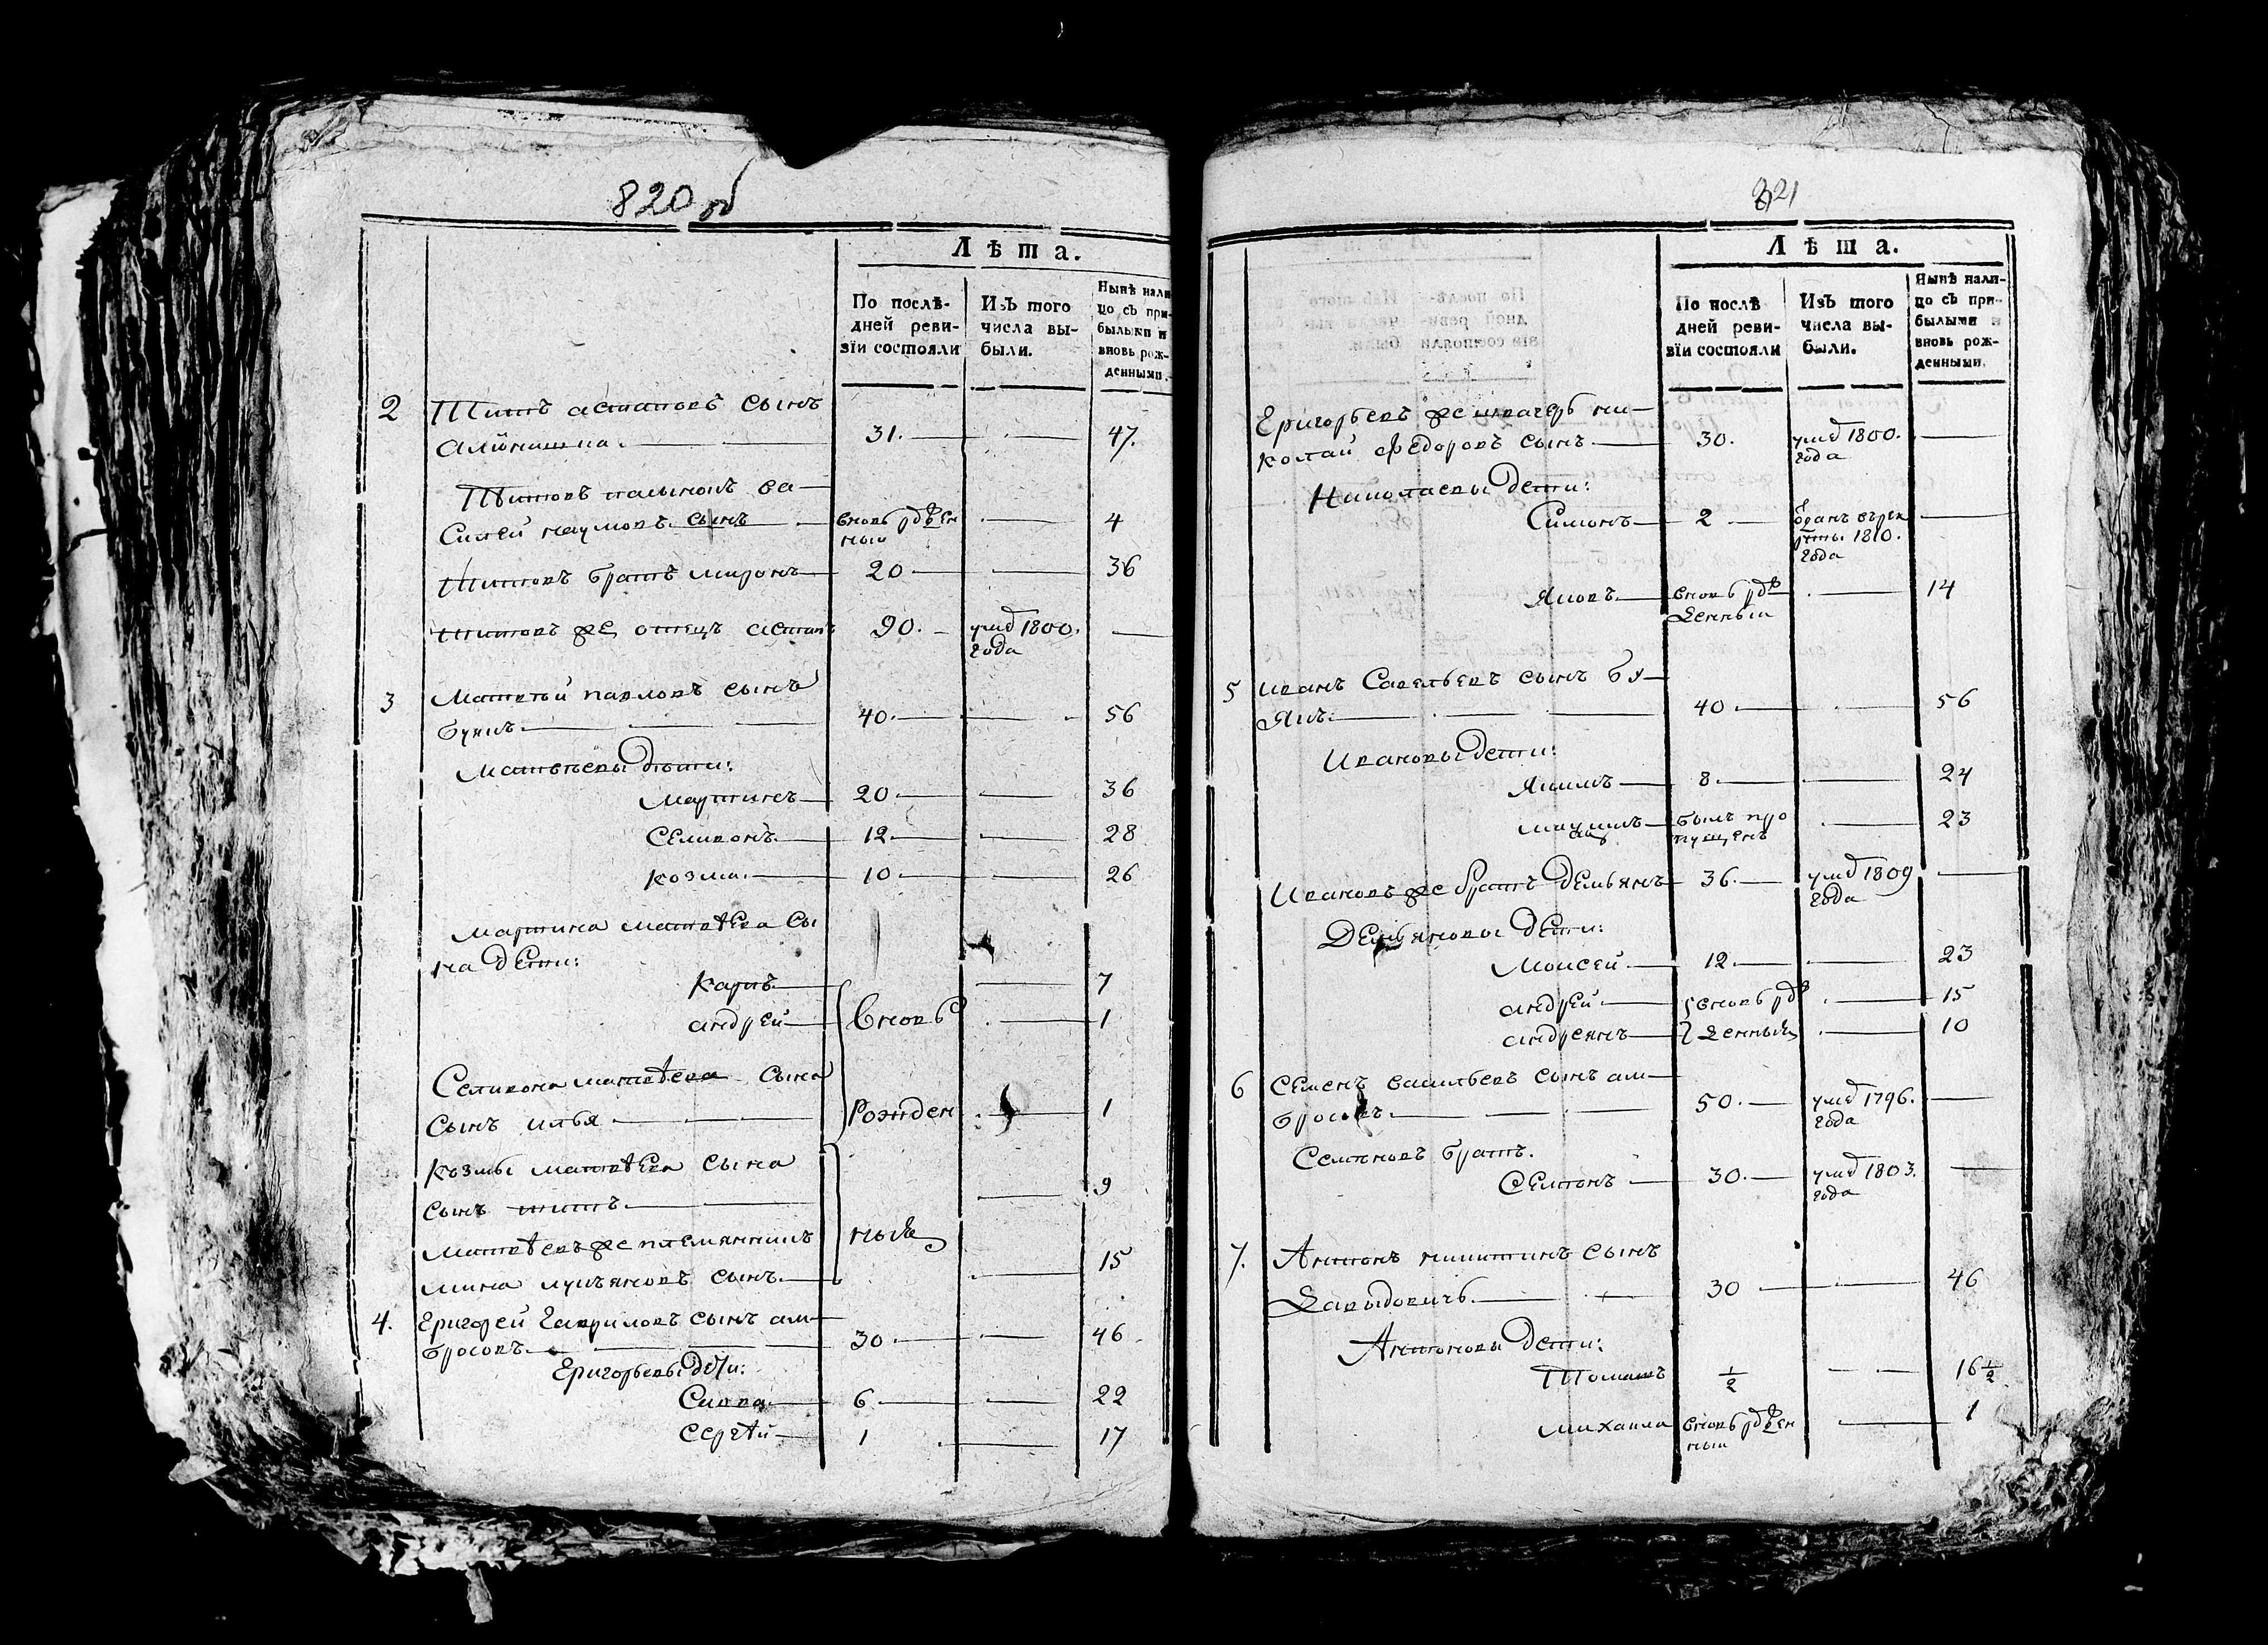 820 об
Лѣта.
По послѣ-
дней реви-
зіи состояли
Изъ того
числа вы-
были.
Нынѣ нали
цо съ при-
былыми и
вновь рож-
денными.
2 Титъ астаповъ сынъ
31. 47.
Титовъ
силей наумовъ сынъ вновь рожден 4
ный
Титовъ братъ миронъ 20 36
титовъ же отецъ астапъ 90. умер 1800.
года
3 Матвей павловъ сынъ
40. 56
Матвѣевы дѣти:
Мартинъ 20 36
Селивонъ 12 28
козма. 10 26
Мартина матвѣева сы
на дети:
карпъ 7
андрей вновь 1
Селивона матвѣева сына
сынъ илья рожден 1
козмы матвѣева сына
сынъ титъ 9
матвѣевъ же племянникъ ныя
мина лукъяновъ сынъ 15
4. Григорей Гавриловъ сынъ ам-
бросовъ. 30 46
Григорьевы дети:
Савва 6 22
Сергѣй 1 17
821
Лѣта.
По послѣ
дней реви-
зіи состояли
Изъ того
числа вы-
были.
Нынѣ нали-
цо съ при-
былыми и
вновь рож-
денными.
Григорьевъ же швагеръ ни-
колай федоровъ сынъ 30. умер 1800.
года
Николаевы дети:
Симонъ 2 бранъ въ рек
руты 1810.
года
Яковъ вновь рож 14
денный
5 иванъ Савельевъ сынъ бу-
якъ. 40 56
Ивановы дети:
Якимъ 8. 24
былъ про 23
пущенъ
Ивановъ же братъ демьянъ 36. умер 1809
года
Демьяновы дети:
Моисей 12 23
андрей вновь рож 15
андреянъ денныя 10
6 Семенъ васильевъ сынъ ам-
бросовъ. 50. умер 1796.
года
Семеновъ братъ.
30. умер 1803.
года
7. Антонъ никитинъ сынъ
Давыдовичъ. 30 46
Антоновы дети:
Томашъ 1/2 16 1/2
михаила вновь рожден 1
ный